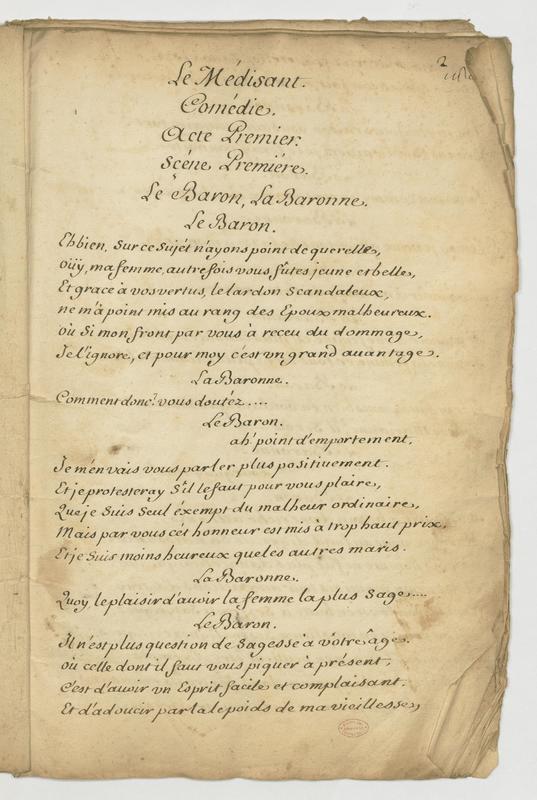 2
Le Médisant.
Comédie.
Acte Premier.
Scéne Premiére.
Le Baron, La Baronne.
Le Baron.
Ehbien, Sur ce Sujét n'ayons point de querelle,
oüy, ma femme, autrefois vous fûtes jeune et belle,
Et grace à vos vertus, le lardon Scandaleux,
ne m'a point mis au rang des Epoux malheureux.
où Si mon front par vous a receu du dommage,
Je l'ignore, et pour moy c'est vn grand auantage.
La Baronne.
Comment donc? vous doutéz....
Le Baron.
ah! point d'emportement,
Je m'en vais vous parler plus positiuement.
Et je protesteray S'il le faut pour vous plaire,
Que je Suis Seul éxempt du malheur ordinaire,
Mais par vous cét honneur est mis à trop haut prix,
Et je Suis moins heureux que les autres maris.
La Baronne.
Quoy le plaisir d'auoir la femme la plus Sage....
Le Baron.
Il n'est plus question de Sagesse à vôtre âge.
où celle dont il faut vous piquer à présent,
C'est d'auoir vn Esprit facile et complaisant.
Et d'adoucir par là le poids de ma vieillesse,